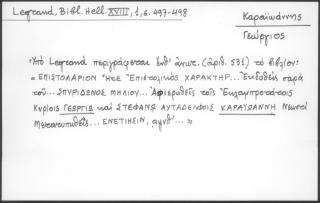 Legrand, Bibl. Hell. XVIII, 1, σ. 497-498
Καραϊωάννης
Γεώργιος
Ὑπὸ Legrand περιγράφεται ὑπ' (ἀριθ. 531) τὸ βιβλίον:
« ΕΠΙΣΤΟΛΑΡΙΟΝ Ἤτοι Ἐπιστολικὸς ΧΑΡΑΚΤΗΡ... Ἐκδοθεὶς παρὰ
τοῦ... ΣΠΥΡΙΔΩΝΟΣ ΜΗΛΙΟΥ... Ἀφιερωθεὶς τοῖς Εὐλαμπροτάτοις
Κυρίοις ΓΕΩΡΓΙΩ καὶ ΣΤΕΦΑΝΩ ΑΥΤΑΔΕΛΦΟΙΣ ΚΑΡΑΥΩΑΝΝΗ Νεωστὶ
Μετατυπωθεὶς... ΕΝΕΤΙΗΣΙΝ, ͵αψνθ'... »